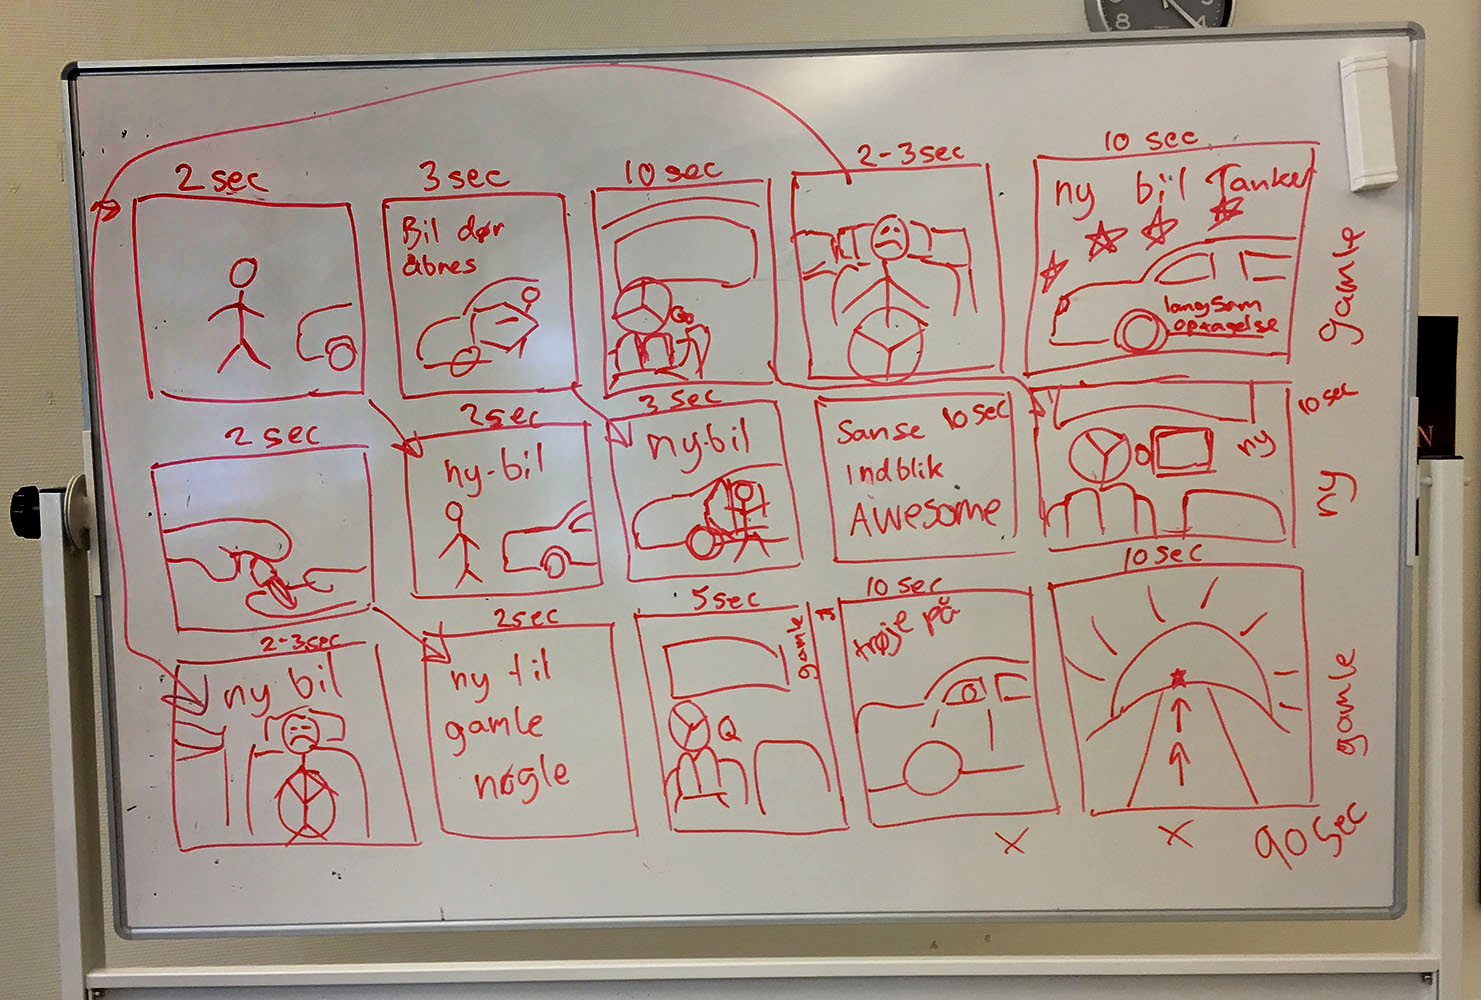 8
4
2 sec
3 sec
10 sec
2-3 sec
10 sec
Bil dør
åbnes
ny bil Tanker
langsom
opragelse
gamle
2 sec
2 sec
ny-bil
3 sec
ny-bil
Sanse 10 sec
indblik
Awesome
10 sec
ny
ny
2-3 sec
ny bil
2 sec
ny til
gamle
nøgle
5 sec
gamle
10 sec
trøje på
10 sec
gamle
x
x
90 sec
N